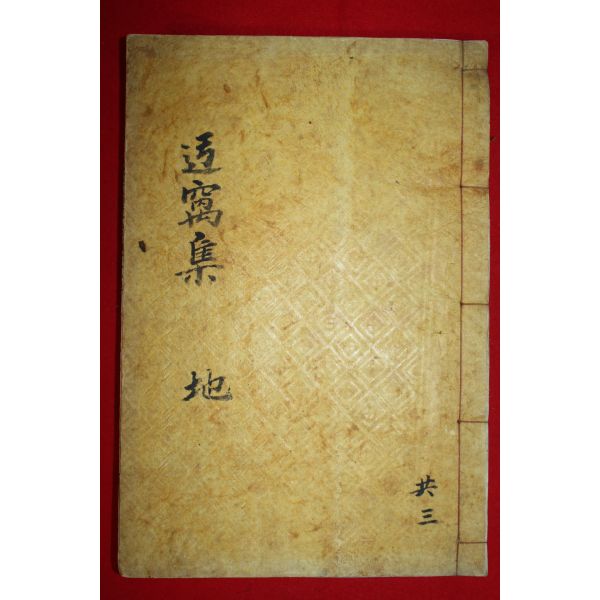 窩集 地
共三